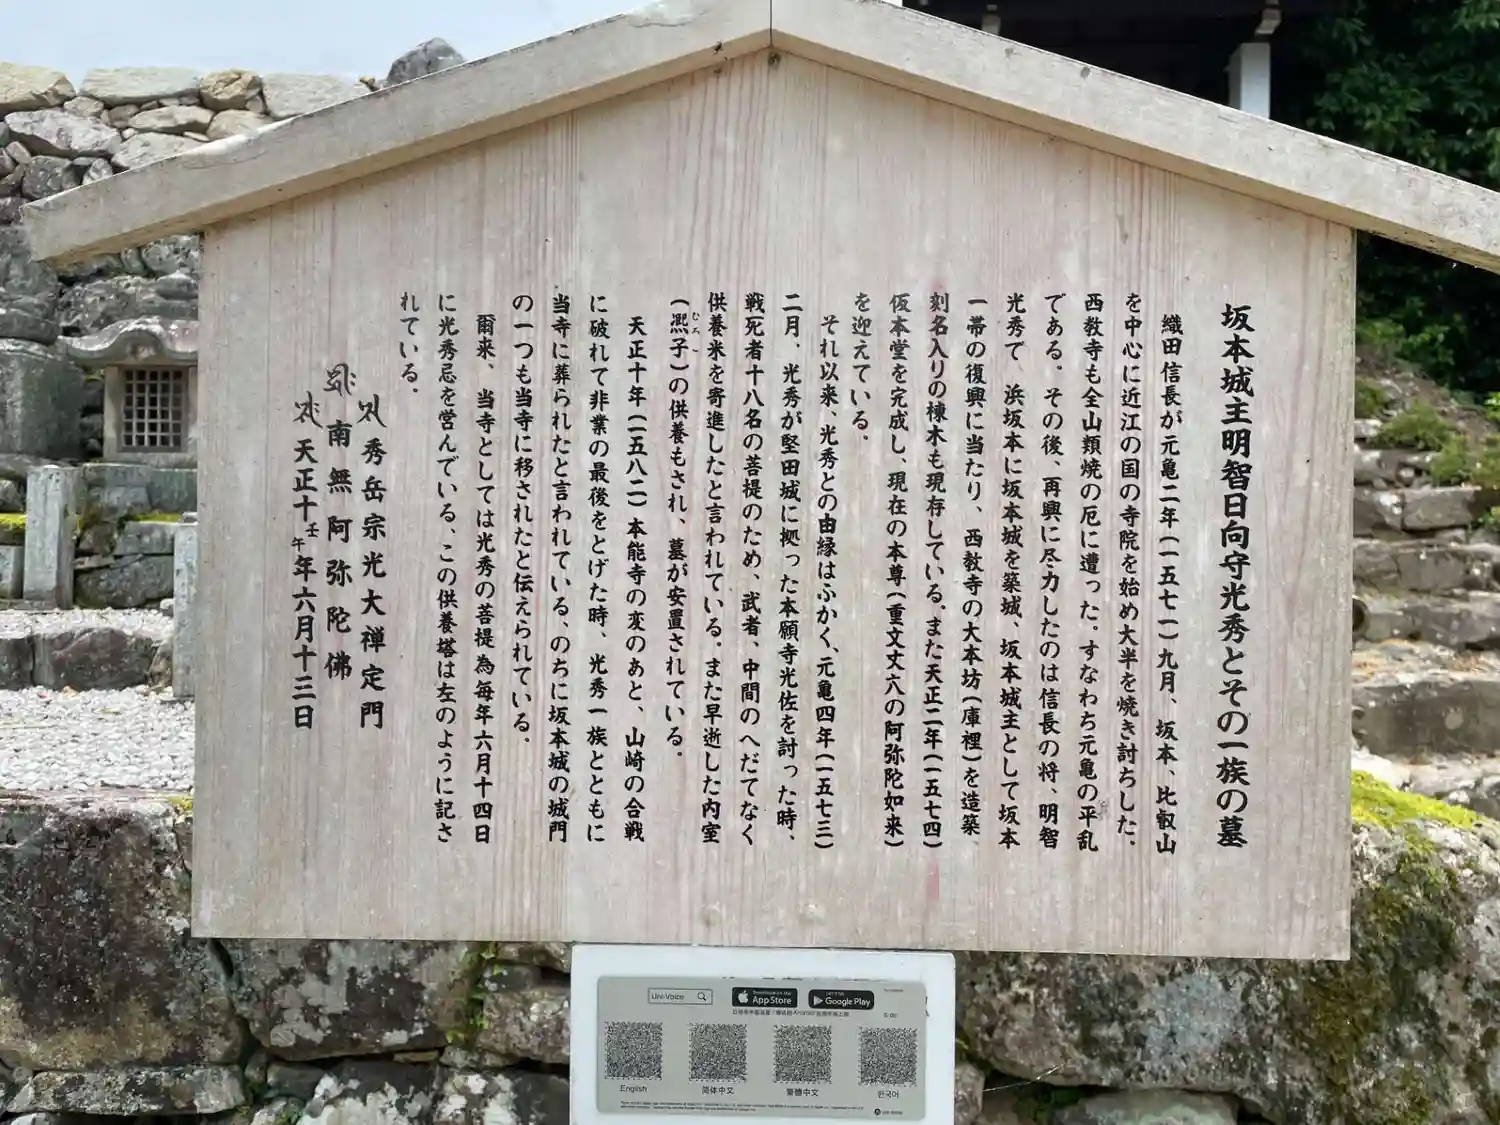 坂本城主明智日向守光秀とその一族の墓
織田信長が元亀二年(一五七一)九月、坂本、比叡山
を中心に近江の国の寺院を始め大半を焼き討ちした。
西教寺も全山類焼の厄に遭った。すなわち元亀の平乱
である。その後、再興に尽力したのは信長の将、明智
光秀で、浜坂本に坂本城を築城、坂本城主として坂本
一帯の復興に当たり、西教寺の大本坊(庫裡)を造築
刻名入りの棟木も現存している。また天正二年(一五七四)
仮本堂を完成し、現在の本尊(重文丈六の阿弥陀如来)
を迎えている。
それ以来、光秀との由縁はふかく、元亀四年(一五七三)
二月、光秀が堅田城に拠った本願寺光佐を討った時、
戦死者十八名の菩提のため、武者、中間のへだてなく
供養米を寄進したと言われている。また早逝した内室
(凞子)の供養もされ、墓が安置されている。
天正十年(一五八二)本能寺の変のあと、山崎の合戦
に破れて非業の最後をとげた時、光秀一族とともに
当寺に葬られたと言われている、のちに坂本城の城門
の一つも当寺に移されたと伝えられている。
爾来、当寺としては光秀の菩提為毎年六月十四日
に光秀忌を営んでいる、この供養塔は左のように記さ
れている。
秀岳宗光大禅定門
南無阿弥陀佛
天正十壬午年六月十三日
Uni-Voice
App Store
Google Play
English
简体中文
繁體中文
한국어